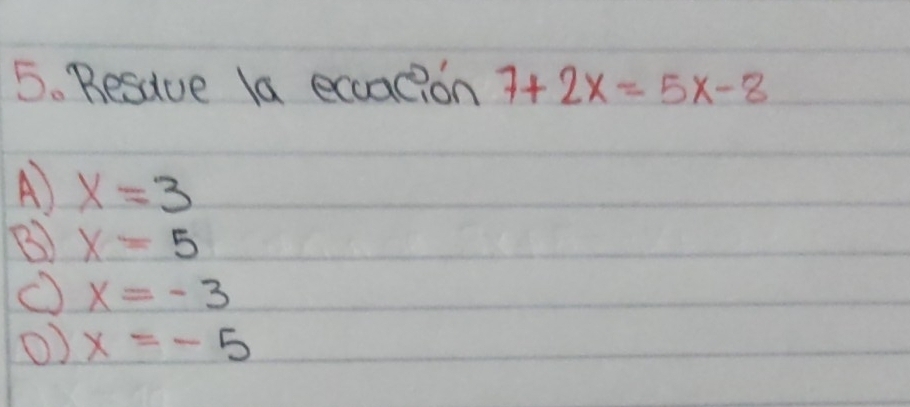 5. Resuelve la ecuación 7+2x=5x-8
A) x=3
B) x=5
C) x=-3
D) x=-5